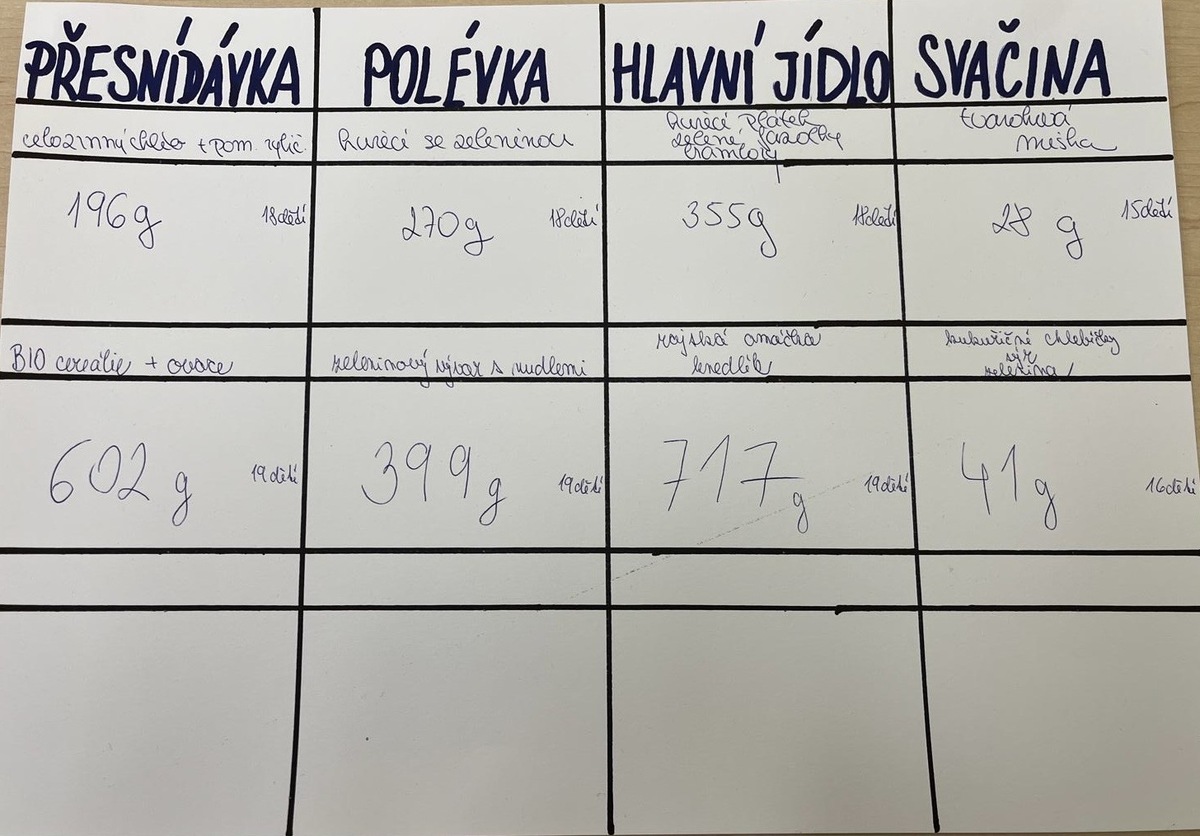 PŘESNÍDÁVKA POLÉVKA HLAVNÍ JÍDLO SVAČINA
celozrnný chléb + pom. rylič.
kuřecí se zeleninou
kuřecí plátek
zelené fazolky
brambory
tvarohová
miska
196g 18dětí
270g 18dětí
355g 18dětí
28 g 15dětí
BIO cereálie + ovoce
zeleninový vývar s nudlemi
rajská omáčka
knedlík
kukuřičné chlebíčky
sýr
zelenina
602 g 19dětí
399 g 19dětí
717 g 19dětí
41 g 16dětí